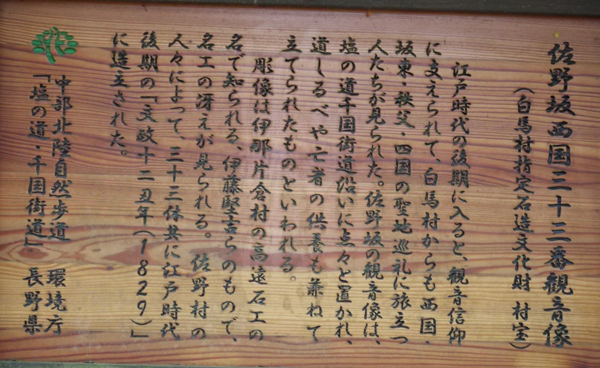 佐野坂西国三十三番観音像
（白馬村指定石造文化財 村宝）
江戸時代の後期に入ると、観音信仰
に支えられて、白馬村からも西国・
坂東・秩父・四国の聖地巡礼に旅立つ
人たちが見られた。佐野坂の観音像は、
塩の道千国街道沿いに点々と置かれ、
道しるべや亡者の供養も兼ねて
立てられたものといわれる。
彫像は伊那片倉村の高遠石工の
名で知られる、伊藤堅吉らのもので、
名工の冴えが見られる。佐野村の
人々によって、三十三体共に江戸時代
後期の「文政十二丑年(1829)」
に造立された。
中部北陸自然歩道 環境庁
「塩の道・千国街道」 長野県